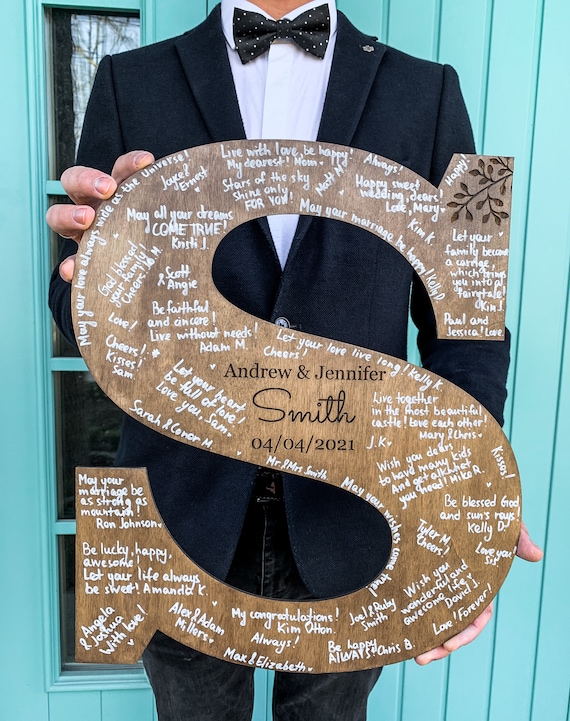 May your love always wide as the Universe!
Jake &
Ernest
Live with love, be happy!
My dearest! Mom
Stars of the sky
shine only
FOR YOU!
Matt M.
Always!
Happy sweet
wedding, dears!
Love, Mary
Happy!
May all your dreams
COME TRUE!
Kristi J.
May your marriage be happy! Kelly D.
Kim K.
Let your
family become
a carriage,
which brings
you into a
fairytale!
Kim J.
Paul and
Jessica! Love.
God blessed
your family!
Cheers!
Scott
& Angie
Love!
Be faithful
and sincere!
Live without needs!
Adam M.
Cheers!
Kisses!
Sam
Let your love live long! Kelly K.
Cheers!
Let your heart
be full of love!
Love you, Sam
Sarah & Conor M.
Andrew & Jennifer
Smith
04/04/2021
Mr & Mrs Smith
Live together
in the most beautiful
castle! Love each other!
J.K.
Mary & Chris
Wish you dear,
to have many kids
And get all what
you need! Mike R.
Kisses!
May your wishes come true!
Be blessed God
and sun's rays!
Kelly D.
Tyler M.
Cheers!
Love you
Sis
May your
marriage be
as strong as
mountain!
Ron Johnson
Be lucky, happy,
awesome!
Let your life always
be sweet! Amanda K.
Angela
& Joshua
With love!
Alex & Adam
Millers
My congratulations!
Kim Otton.
Always!
Max & Elizabeth
Joe & Ruby
Smith
Be happy
ALWAYS Chris B.
Wish you
wonderful and
awesome life!
David J.
Love! Forever!